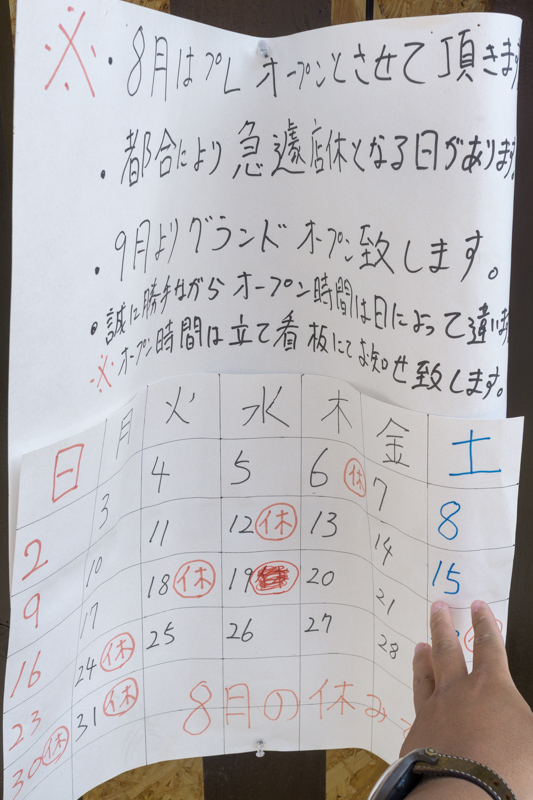 ※・8月はプレオープンとさせて頂きます
・都合により急遽店休となる日があります
・9月よりグランドオープン致します。
・誠に勝手ながらオープン時間は日によって違います
※オープン時間は立て看板にてお知せ致します。
日 月 火 水 木 金 土
4 5 6 休 7
2 3 11 12 休 13 14 8
9 10 18 休 19 20 21 15
16 17 25 26 27 28
23 24 休
30 休 31 休
8月の休み